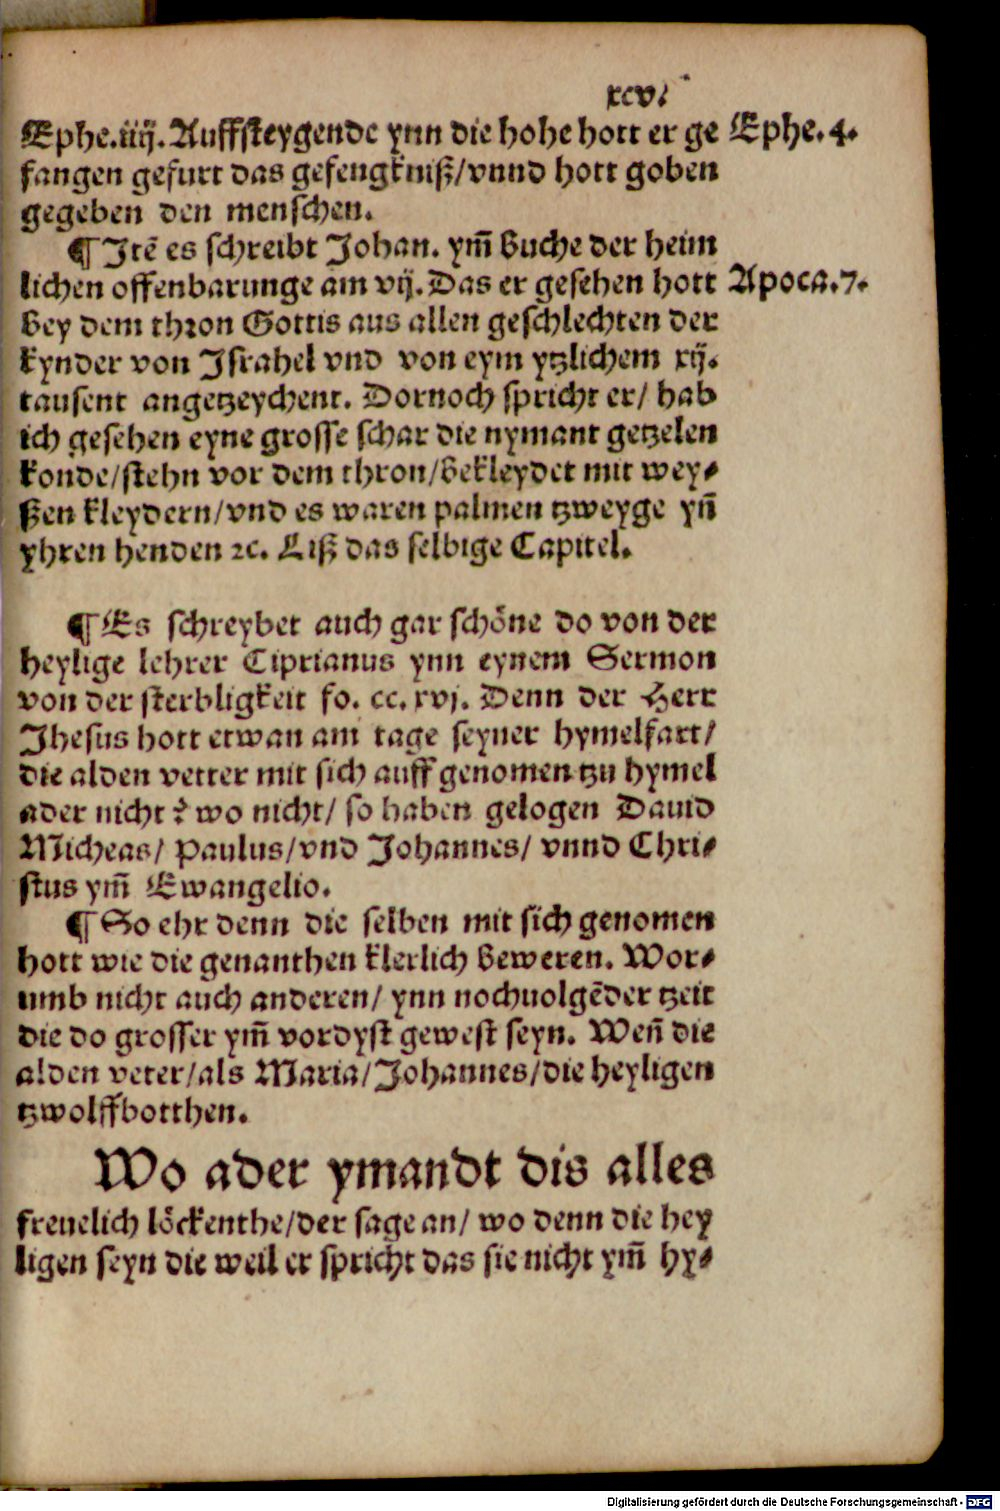 xcvi
Ephe.iiij. Auffsteygende ynn die hohe hott er ge Ephe.4.
fangen gefurt das gefengkniß/vnnd hott goben
gegeben den menschen.
¶ Itē es schreibt Johan. ym̄ buche der heim
lichen offenbarunge am vij. Das er gesehen hott Apoca.7.
bey dem thron Gottis aus allen geschlechten der
kynder von Israhel vnd von eym ytzlichem xij.
tausent angetzeychent. Dornoch spricht er/ hab
ich gesehen eyne grosse schar die nymant getzelen
konde/stehn vor dem thron/bekleydet mit wey⸗
ßen kleydern/vnd es waren palmen tzweyge yn̄
yhren henden ꝛc. Liß das selbige Capitel.
¶ Es schreybet auch gar schöne do von der
heylige lehrer Ciprianus ynn eynem Sermon
von der sterbligkeit fo. cc. xvj. Denn der Herr
Jhesus hott etwan am tage seyner hymelfart/
die alden vetter mit sich auff genomen tzu hymel
ader nicht? wo nicht/ so haben gelogen Dauid
Micheas/ Paulus/vnd Johannes/ vnnd Chri⸗
stus ym̄ Ewangelio.
¶ So ehr denn die selben mit sich genomen
hott wie die genanthen klerlich beweren. Wor⸗
umb nicht auch anderen/ ynn nochuolgēder tzeit
die do grosser ym̄ vordyst gewest seyn. Wen̄ die
alden veter/als Maria/Johannes/die heyligen
tzwolffbotthen.
Wo ader ymandt dis alles
freuelich löckenthe/der sage an/ wo denn die hey
ligen seyn die weil er spricht das sie nicht ym̄ hy⸗
Digitalisierung gefördert durch die Deutsche Forschungsgemeinschaft - DFG